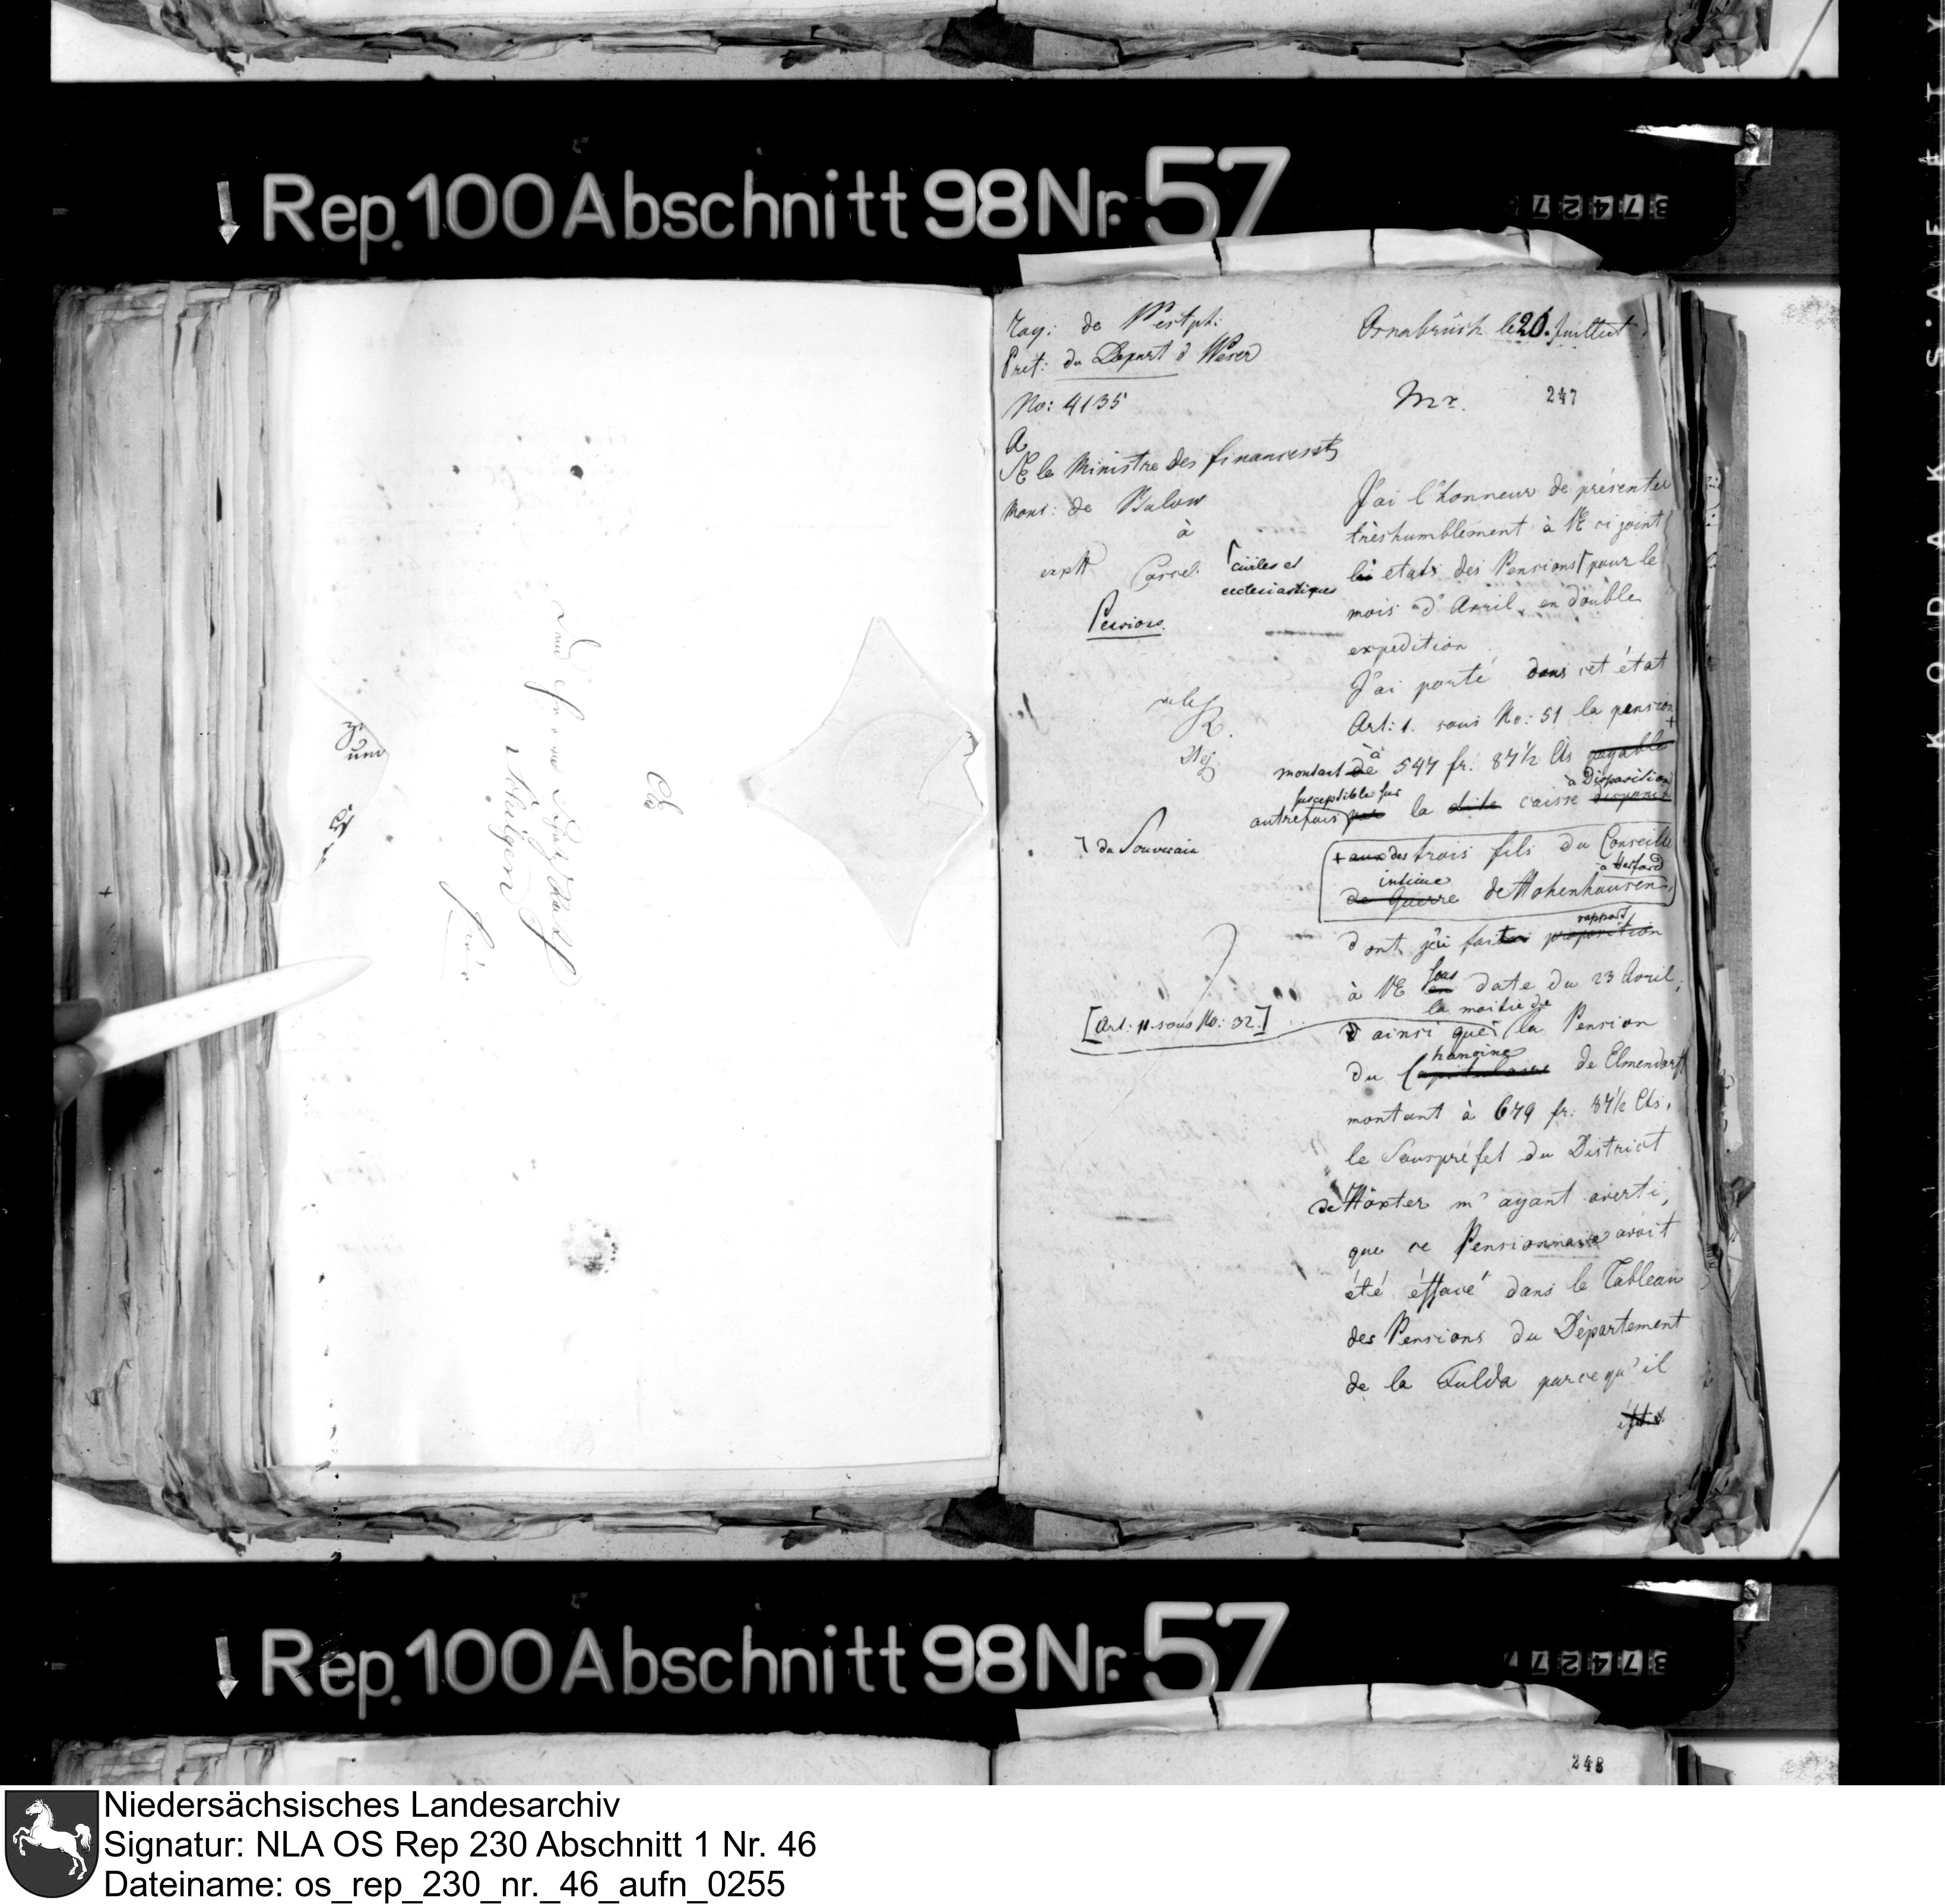 Rep. 100 Abschnitt 98 Nr. 57
Roy: de Westph:
Pref: du Depart d Weser
No: 4135
Osnabrück le 26. Juillet
Mr.
247
A
SE le Ministre des finances
Mons: de Bulow
à
Cassel
expd
Pensions.
J'ai l'honneur de présenter
très humblement à VE ci joint
les etats des Pensions ⌈ pour le
⌈ civiles et
ecclesiastiques
mois d'Avril, en double
expedition
J'ai porté dans cet état
Art: 1. sous No: 51 la pension +
montant de à 547 fr: 87 1/2 Cts payable
autrefois par susceptible sur la dite caisse à Disposition
⌉ du Souverain
+ aux des trois fils du Conseiller
intime de Guerre de Hohenhausen, à Herford
dont j'ai fait rapport proposition
à VE sous en date du 23 Avril,
[Art: 11. sous No: 32.]
ainsi que la moitié de la Pension
du Chanoine Capitulaire de Elmendorff
montant à 679 fr: 87 1/2 Cts.
le Souspréfet du District
de Höxter m'ayant averti,
que ce Pensionnaire avoit
été éffacé dans le Tableau
des Pensions du Département
de la Fulda parcequ'il
Rep. 100 Abschnitt 98 Nr. 57
248
KODAK·SAFETY
Niedersächsisches Landesarchiv
Signatur: NLA OS Rep 230 Abschnitt 1 Nr. 46
Dateiname: os_rep_230_nr._46_aufn_0255